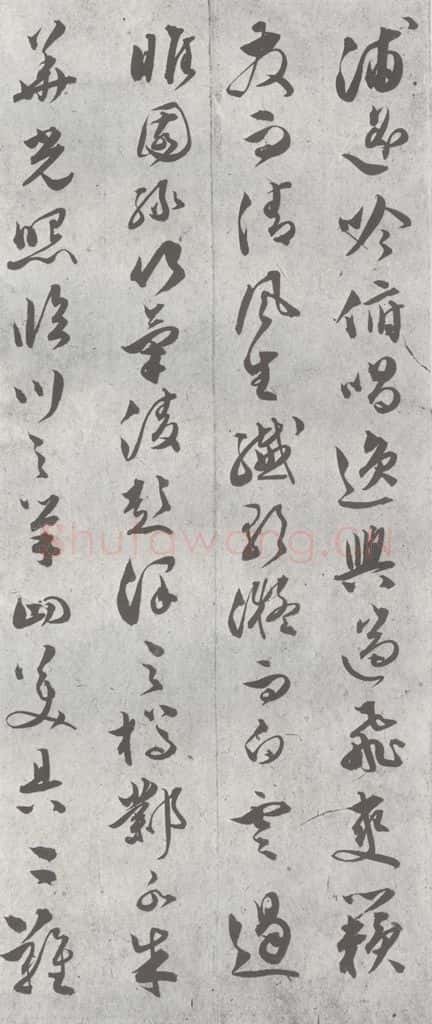 浦遥吟俯唱逸興遄飛爽籟
發而清風生纖歌凝而白雲遏
睢園綠竹氣淩彭澤之樽鄴水朱
華光照臨川之筆四美具二難
Shufawang.CN